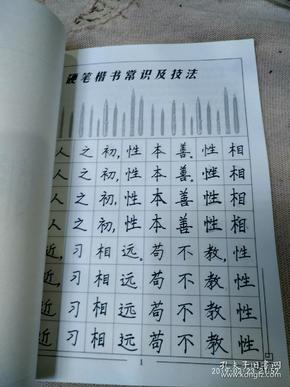 硬笔楷书常识及技法
人之初,性本善。性相
人之初,性本善。性相
人之初,性本善性相
人之初,性本善性相
近,习相远。苟不教,性
近,习相远苟不教性
近,习相远苟不教性
近习相远苟不教,性
1